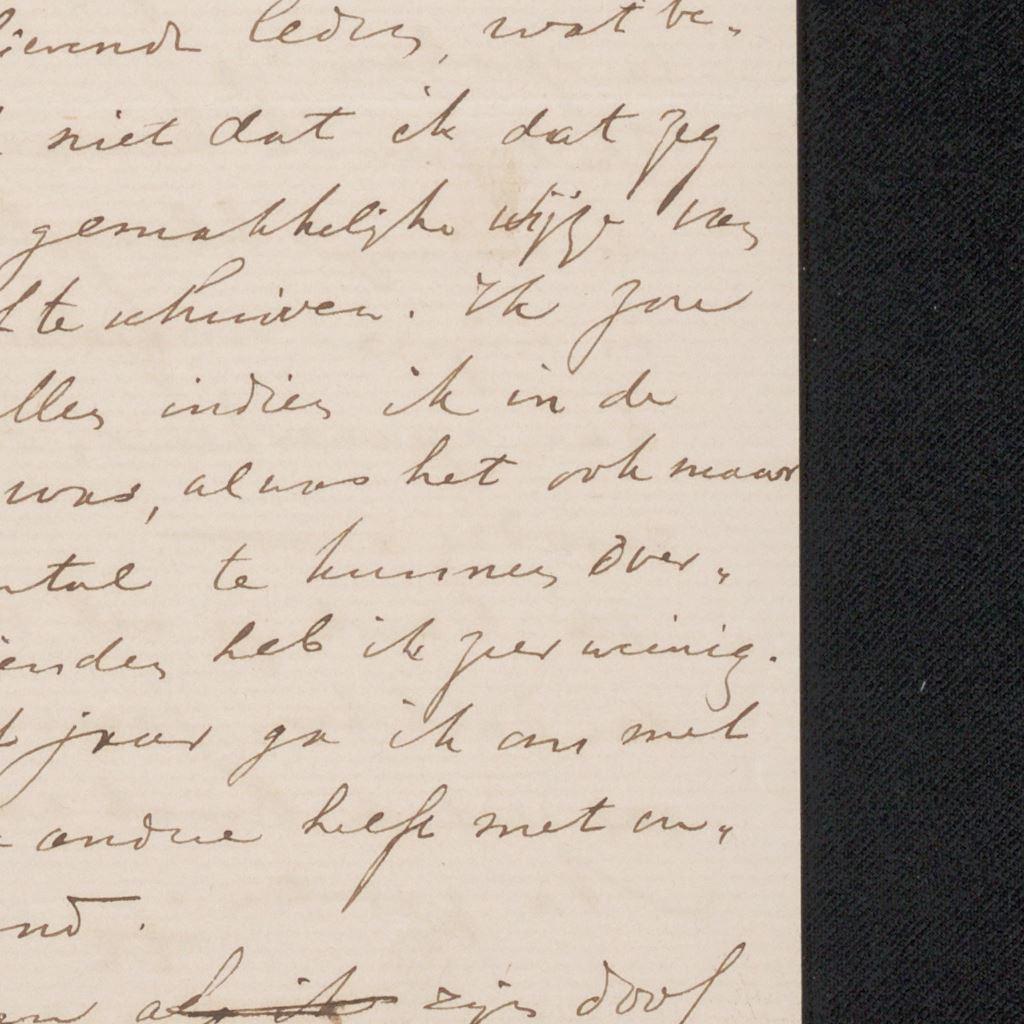 lievende leden, wat be„
niet dat ik dat zeg
gemakkelijke wijze van
te schuiven. Ik zou
alles indien ik in de
was, al was het ook maar
ntal te kunnen over„
ienden heb ik zeer weinig.
jaar ga ik om met
andere helft met on„
nd.
zijn doof